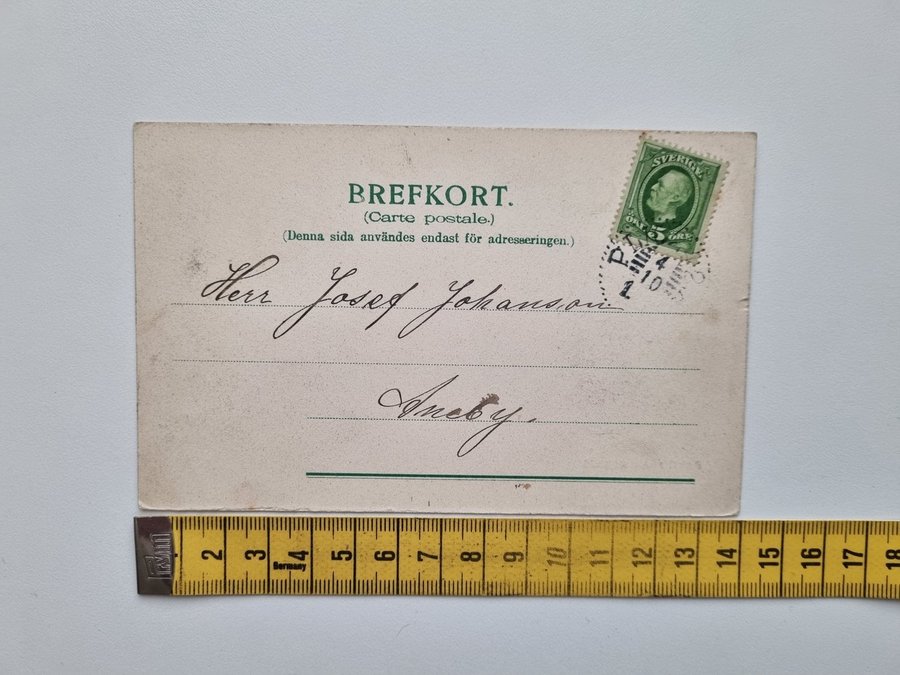 BREFKORT.
(Carte postale.)
(Denna sida användes endast för adresseringen.)
SVERIGE
5
ÖRE
4
10
1
Herr Josef Johanson
Aneby.
2 3 4 5 6 7 8 9 10 11 12 13 14 15 16 17 18
Germany